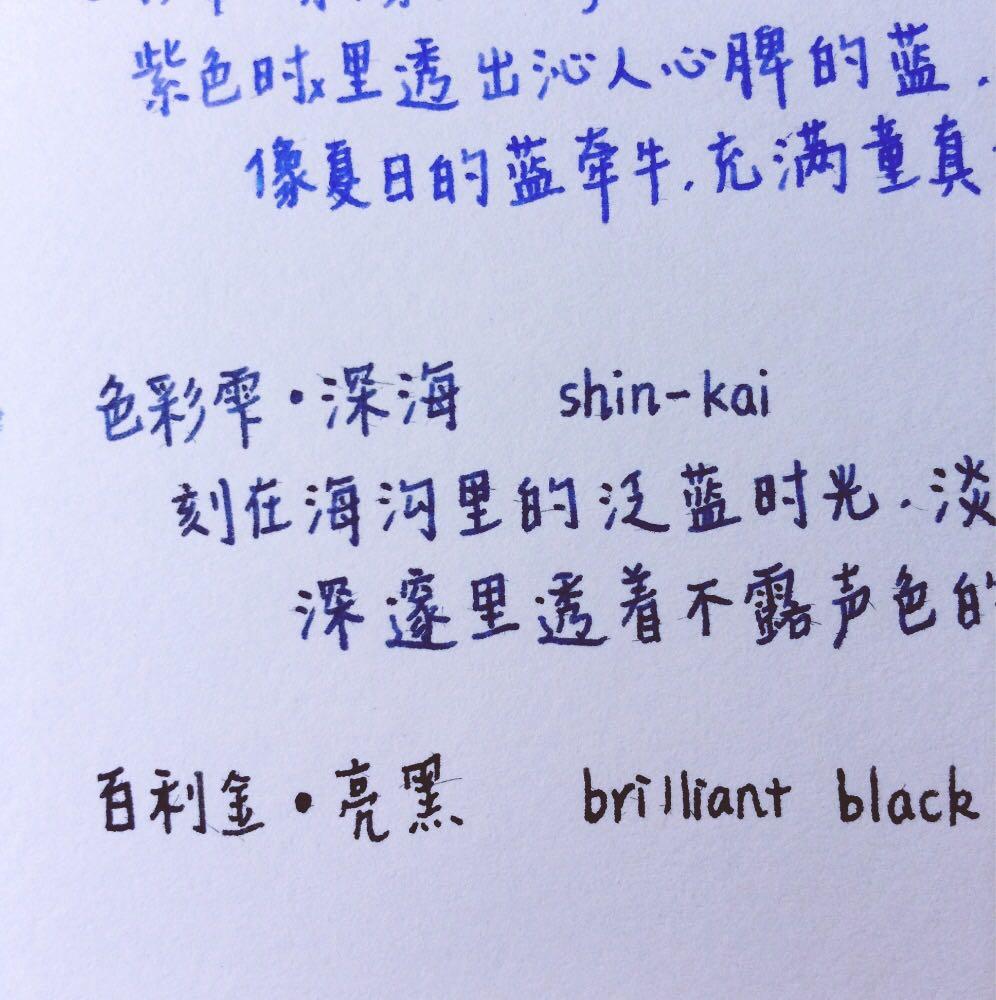 紫色时里透出沁人心脾的蓝.
像夏日的蓝牵牛.充满童真
色彩雫·深海 shin-kai
刻在海沟里的泛蓝时光.淡
深邃里透着不露声色的
百利金·亮黑 brilliant black